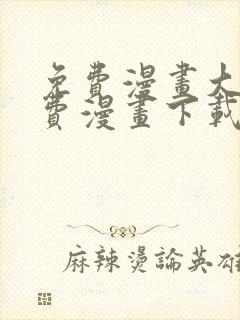 免費漫畫大
費漫畫下載
麻辣燙論英雄